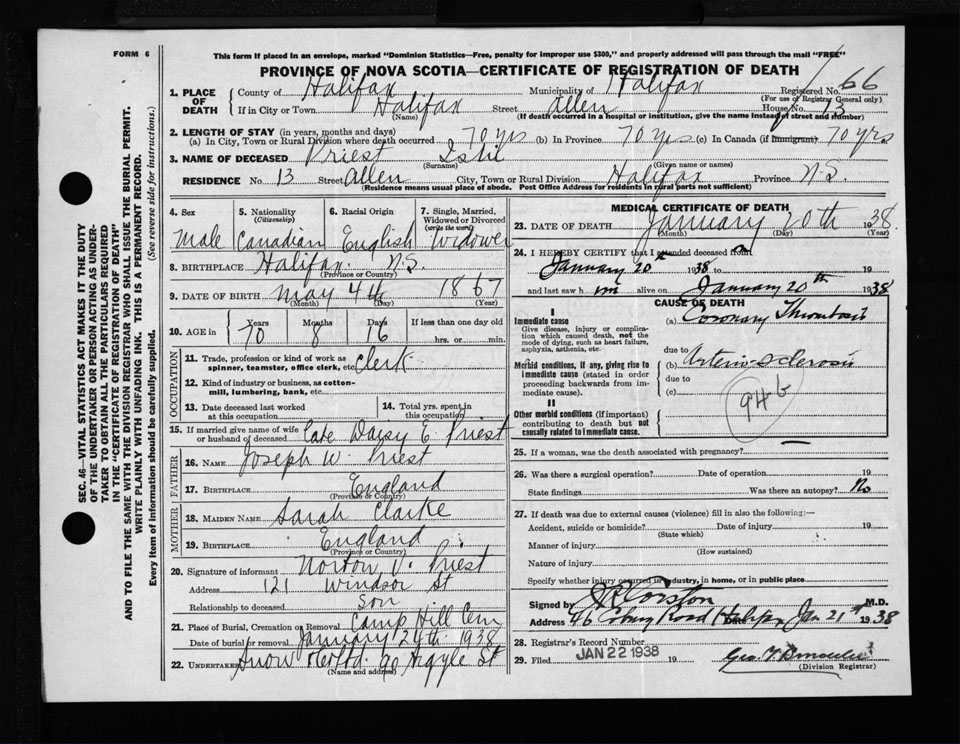 FORM 6
This form if placed in an envelope, marked "Dominion Statistics—Free, penalty for improper use $300," and properly addressed will pass through the mail "FREE"
PROVINCE OF NOVA SCOTIA—CERTIFICATE OF REGISTRATION OF DEATH
SEC. 46—VITAL STATISTICS ACT MAKES IT THE DUTY
OF THE UNDERTAKER OR PERSON ACTING AS UNDER-
TAKER TO OBTAIN ALL THE PARTICULARS REQUIRED
IN THE "CERTIFICATE OF REGISTRATION OF DEATH"
AND TO FILE THE SAME WITH THE DIVISION REGISTRAR WHO SHALL ISSUE THE BURIAL PERMIT.
WRITE PLAINLY WITH UNFADING INK. THIS IS A PERMANENT RECORD.
Every item of information should be carefully supplied. (See reverse side for instructions.)
1. PLACE OF DEATH County of Halifax Municipality of Halifax Registered No. 66
(For use of Registrar General only)
If in City or Town Halifax Street Allen House No. 13
(Name) (If death occurred in a hospital or institution, give the name instead of street and number)
2. LENGTH OF STAY (in years, months and days)
(a) In City, Town or Rural Division where death occurred 70 yrs (b) In Province 70 yrs (c) In Canada (if immigrant) 70 yrs
3. NAME OF DECEASED Priest
(Surname) (Given name or names)
RESIDENCE No. 13 Street Allen City, Town or Rural Division Halifax Province N.S.
(Residence means usual place of abode. Post Office Address for residents in rural parts not sufficient)
4. Sex 5. Nationality (Citizenship) 6. Racial Origin 7. Single, Married, Widowed or Divorced (write the word)
Male Canadian English Widower
8. BIRTHPLACE Halifax. N.S.
(Province or Country)
9. DATE OF BIRTH May 4th 1867
(Month) (Day) (Year)
10. AGE in Years Months Days If less than one day old
70 8 16 hrs. or min.
OCCUPATION
11. Trade, profession or kind of work as spinner, teamster, office clerk, etc. Clerk
12. Kind of industry or business, as cotton-mill, lumbering, bank, etc.
13. Date deceased last worked at this occupation 14. Total yrs. spent in this occupation
15. If married give name of wife or husband of deceased Late Daisy E. Priest
FATHER
16. NAME Joseph W. Priest
17. BIRTHPLACE England
(Province or Country)
MOTHER
18. MAIDEN NAME Sarah Clarke
19. BIRTHPLACE England
(Province or Country)
20. Signature of informant Norton V. Priest
Address 121 Windsor St
Relationship to deceased Son
21. Place of Burial, Cremation or Removal Camp Hill Cem
Date of burial or removal January 24th 1938
22. UNDERTAKER Snow & Co Ltd. 90 Argyle St
(Name and address)
MEDICAL CERTIFICATE OF DEATH
23. DATE OF DEATH January 20th 1938
(Month) (Day) (Year)
24. I HEREBY CERTIFY that I attended deceased from
January 20th 1938 to 19
and last saw h im alive on January 20th 1938
CAUSE OF DEATH
I
Immediate cause (a) Coronary Thrombosis
Give disease, injury or complication which caused death, not the mode of dying, such as heart failure, asphyxia, asthenia, etc.
due to
Morbid conditions, if any, giving rise to immediate cause (stated in order proceeding backwards from immediate cause). (b) Arterio-sclerosis
due to
(c)
94b
II
Other morbid conditions (if important) contributing to death but not causally related to immediate cause.
25. If a woman, was the death associated with pregnancy?
26. Was there a surgical operation? Date of operation 19
State findings Was there an autopsy? No
27. If death was due to external causes (violence) fill in also the following:—
Accident, suicide or homicide? Date of injury 19
(State which)
Manner of injury
(How sustained)
Nature of injury
Specify whether injury occurred in industry, in home, or in public place
Signed by Corston M.D.
Address 46 Coburg Road Halifax Date Jan 21st 1938
28. Registrar's Record Number
29. Filed JAN 22 1938 19
(Division Registrar)